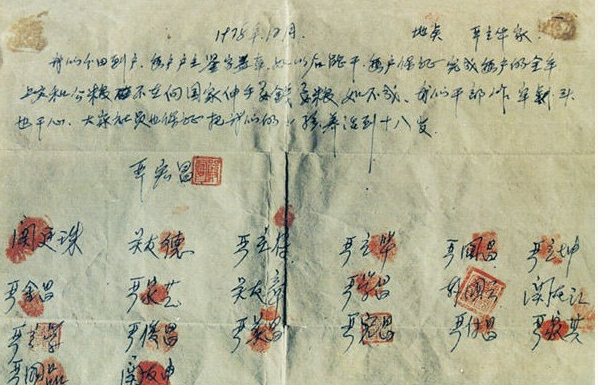 1978年12月. 地点 严立华家
我们分田到户,每户户主鉴字盖章,如以后能干,每户保证完成每户的全年
上交和公粮,不在向国家伸手要钱要粮,如不成,我们干部作牢刹头
也干心,大家社员也保证把我们的小孩养活到十八岁.
严宏昌
关廷珠 关友德 严立符 严立华 严国昌 严立坤
严金昌 严家芝 关友章 严学昌 韩国云 关友江
严立学 严俊昌 严美昌 严宏昌 严付昌 严家其
严国品 关友申